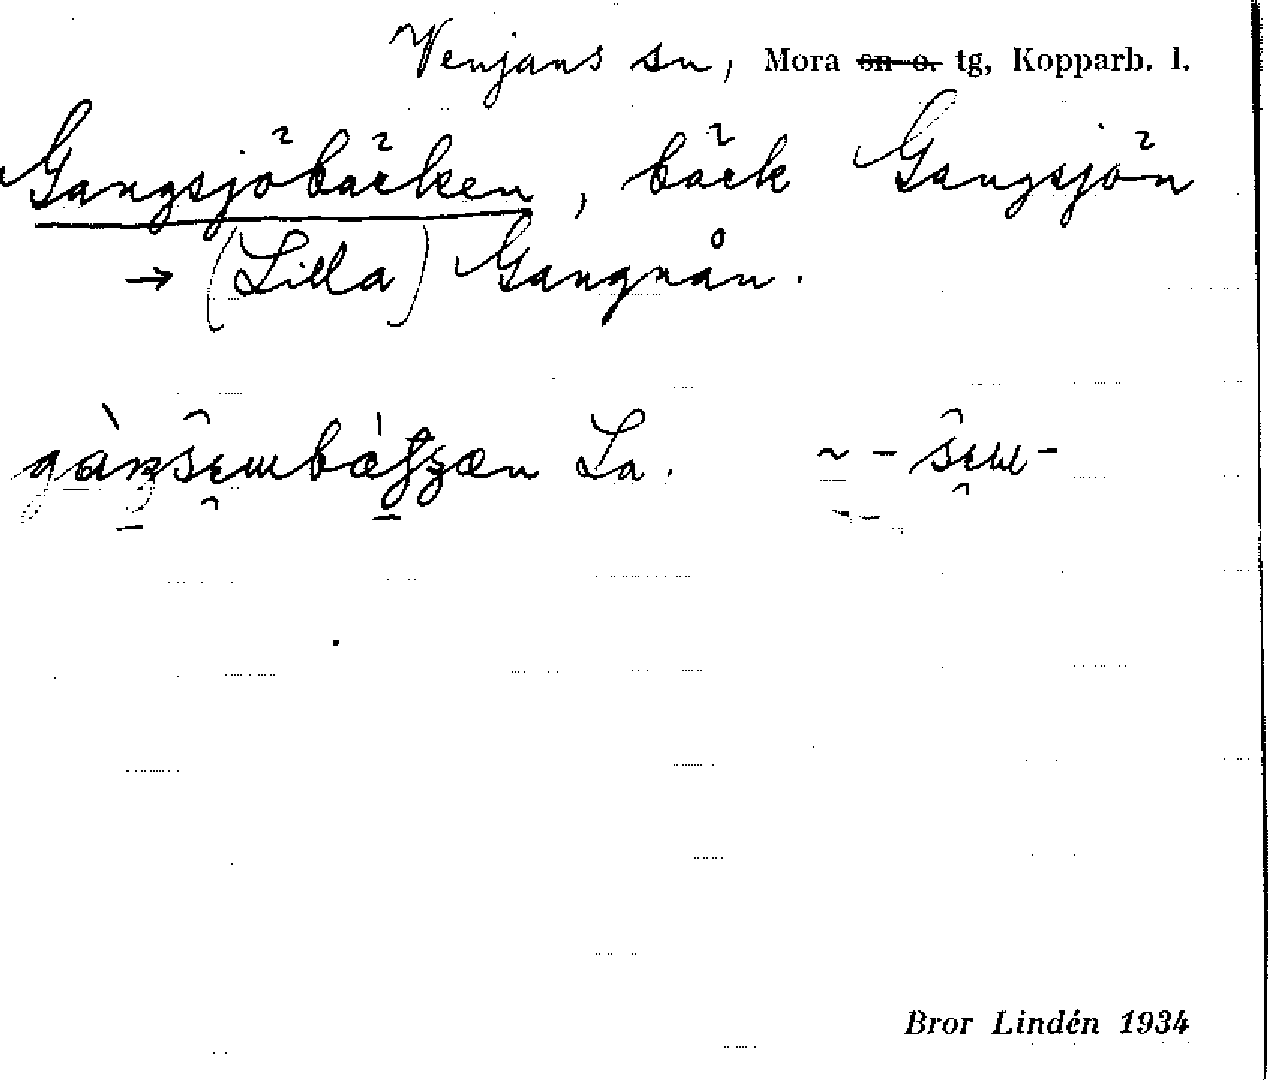 Venjans sn, Mora sn o. tg, Kopparb. l.
Gangsjöbäcken, bäck Gangsjön
→ (Lilla) Gangnån.
La. ~ -
Bror Lindén 1934